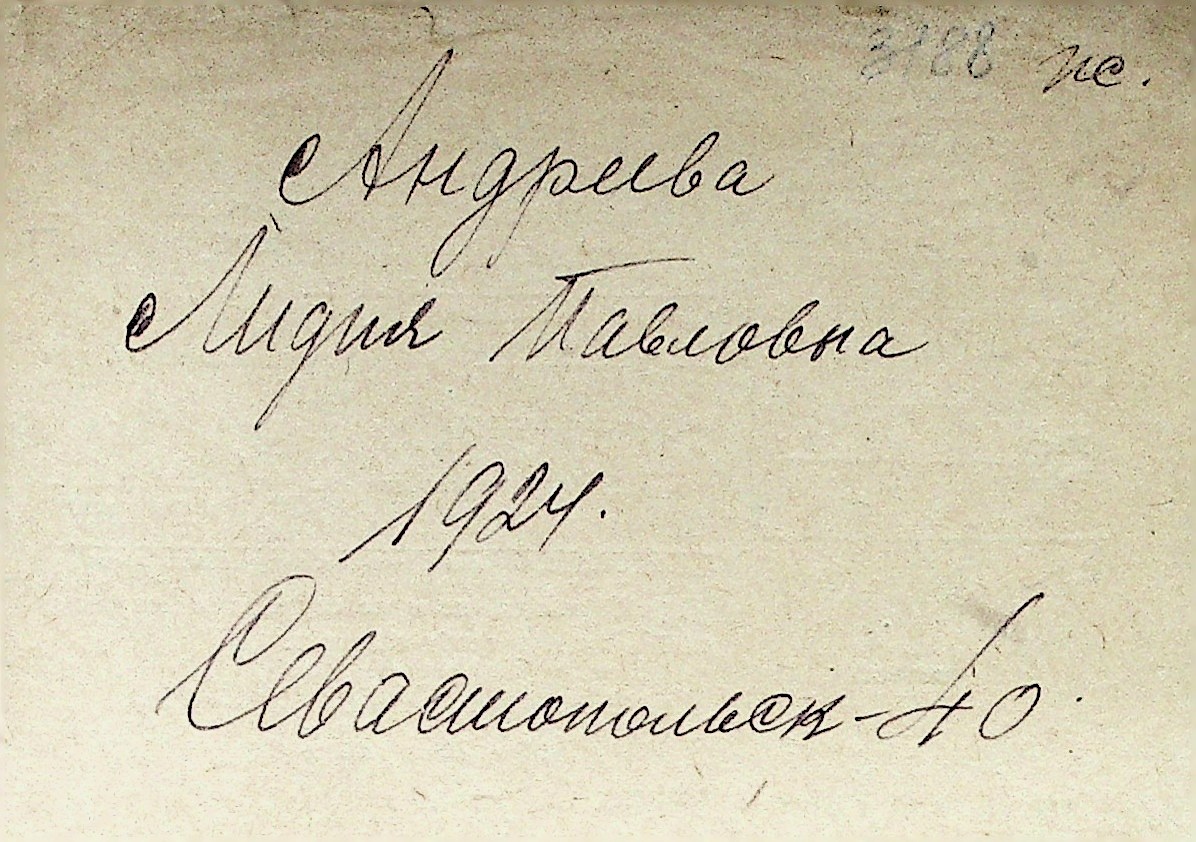 3188 пс.
Андреева
Лидия Павловна
1924.
Севастопольск-40.